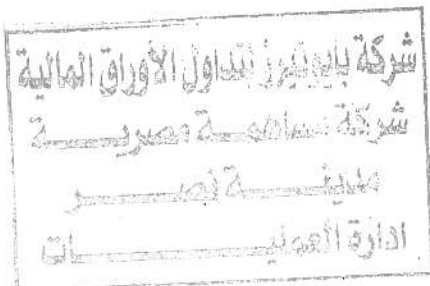 شركة بايونيرز لتداول الأوراق المالية
شركة مساهمة مصرية
مدينة نصر
ادارة العمليات